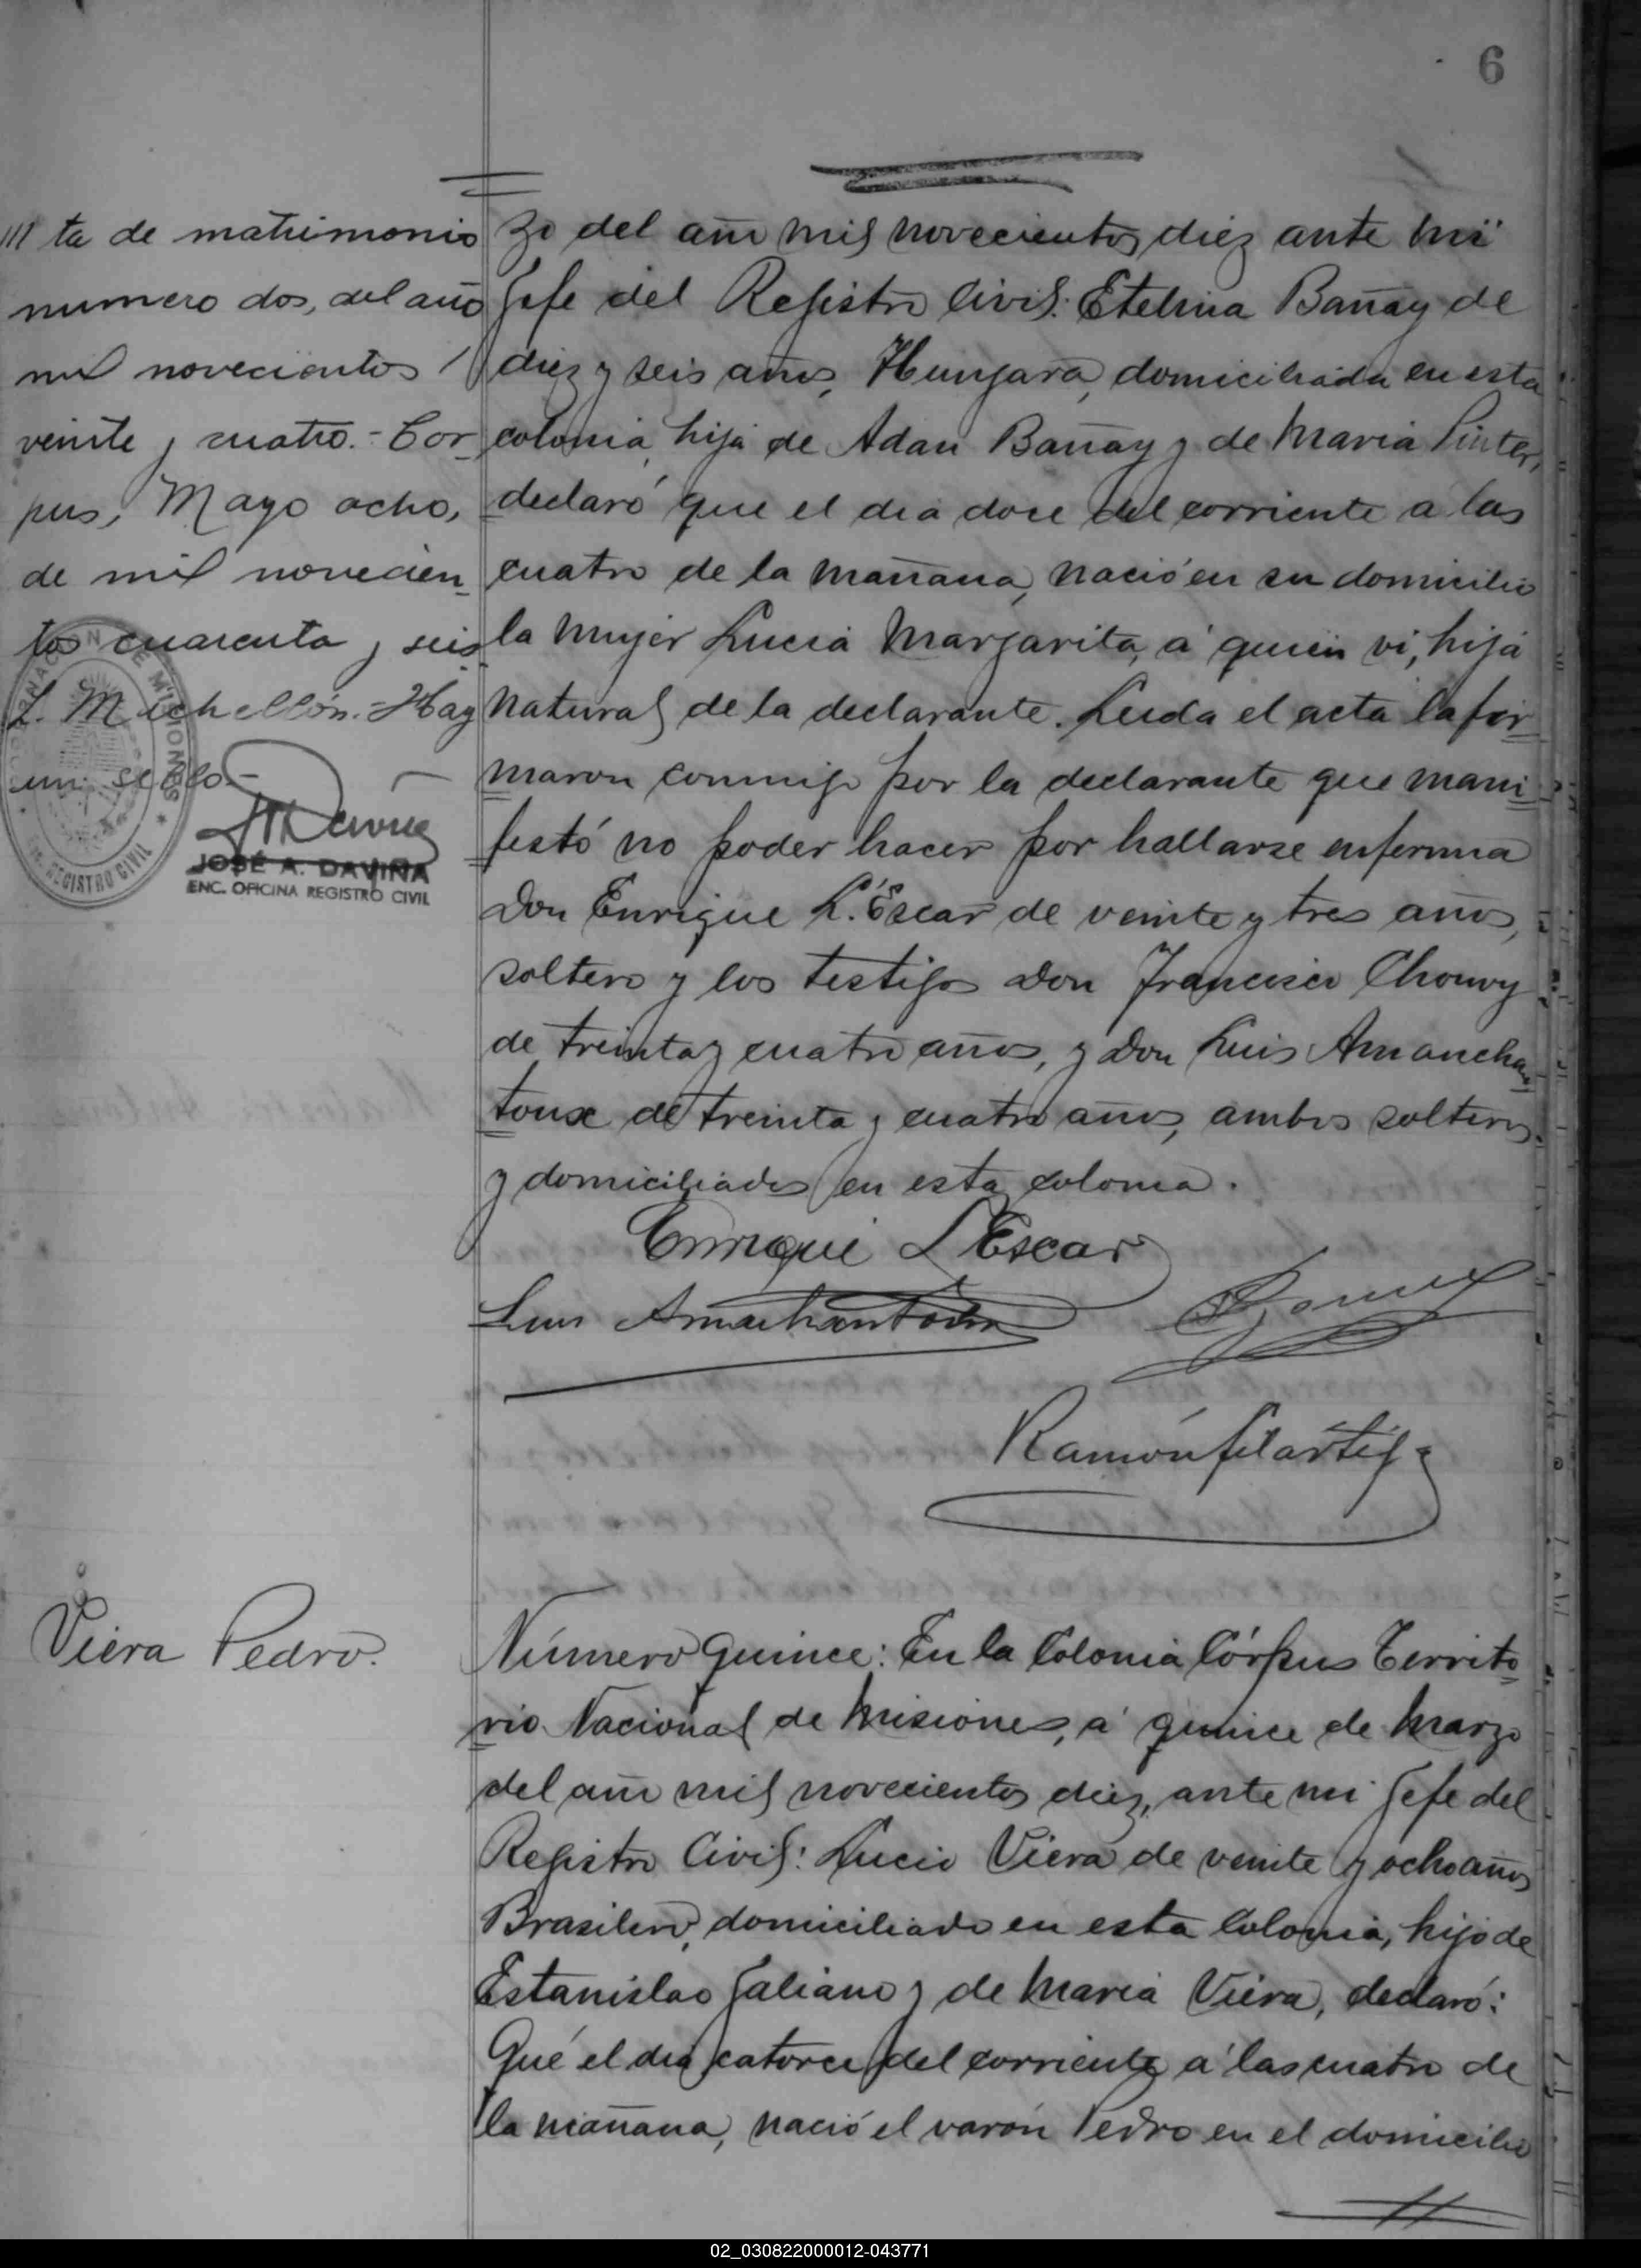 6
ta de matrimonio
numero dos, del año
mil novecientos
veinte y cuatro.- Cor-
pus, Mayo ocho,
de mil novecien-
tos cuarenta y seis
L. Michellón.- Hay
un sello.-
GOBERNACION DE MISIONES
REGISTRO CIVIL
JOSÉ A. DAVIÑA
ENC. OFICINA REGISTRO CIVIL
zo del año mil novecientos diez ante mi
Jefe del Registro Civil: Etelina Bañay de
diez y seis años, Hungara, domiciliada en esta
colonia, hija de Adan Bañay y de Maria Pinter,
declaró que el dia doce del corriente a las
cuatro de la mañana, nació en su domicilio
la mujer Lucia Margarita, á quien vi, hija
natural de la declarante. Leida el acta la fir-
maron conmigo por la declarante que mani-
festó no poder hacer por hallarse enferma
Don Enrique L'Escar de veinte y tres años,
soltero y los testigos Don Francisco Chouvy
de treinta y cuatro años, y Don Luis Amanchan-
toux de treinta y cuatro años, ambos solteros
y domiciliados en esta colonia.
Enrique L'Escar
Luis
Ramón Filártiga
Viera Pedro.
Número quince: En la Colonia Córpus Territo-
rio Nacional de Misiones, á quince de Marzo
del año mil novecientos diez, ante mi Jefe del
Registro Civil: Lucio Viera de veinte y ocho años
Brasilero, domiciliado en esta Colonia, hijo de
Estanislao Galiano y de Maria Viera, declaró:
Qué el dia catorce del corriente á las cuatro de
la mañana, nació el varón Pedro en el domicilio
02_030822000012-043771